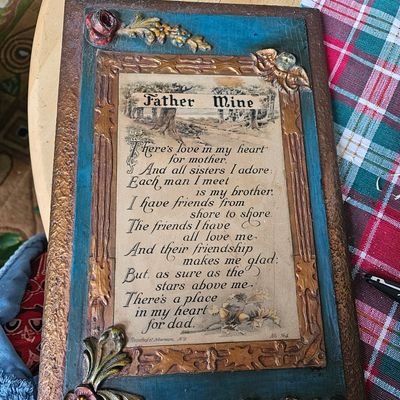 Father Mine
There's love in my heart
for mother,
And all sisters I adore;
Each man I meet
is my brother,
I have friends from
shore to shore
The friends I have
all love me,
And their friendship
makes me glad;
But, as sure as the
stars above me,
There's a place
in my heart
for dad.